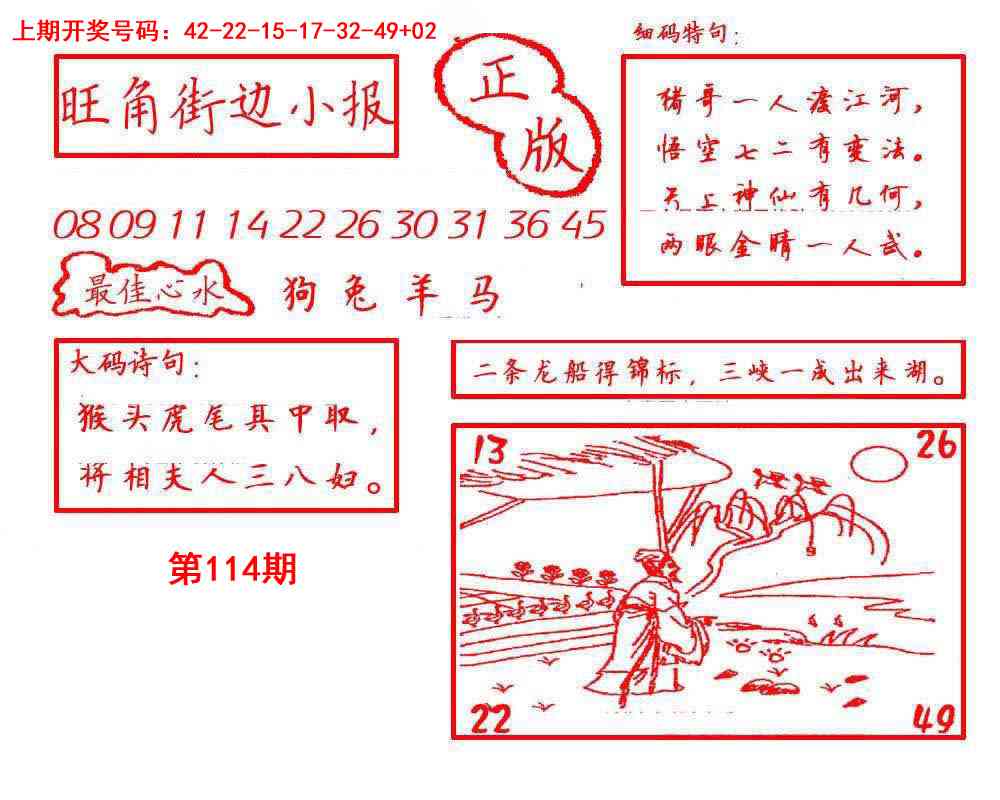 上期开奖号码：42-22-15-17-32-49+02
细码特句：
旺角街边小报
正版
猪哥一人渡江河，
悟空七二有变法。
天上神仙有几何，
两眼金睛一人武。
08 09 11 14 22 26 30 31 36 45
最佳心水
狗兔羊马
大码诗句：
猴头虎尾其中取，
将相夫人三八妇。
二条龙船得锦标，三峡一成出来湖。
13
26
第114期
22
49